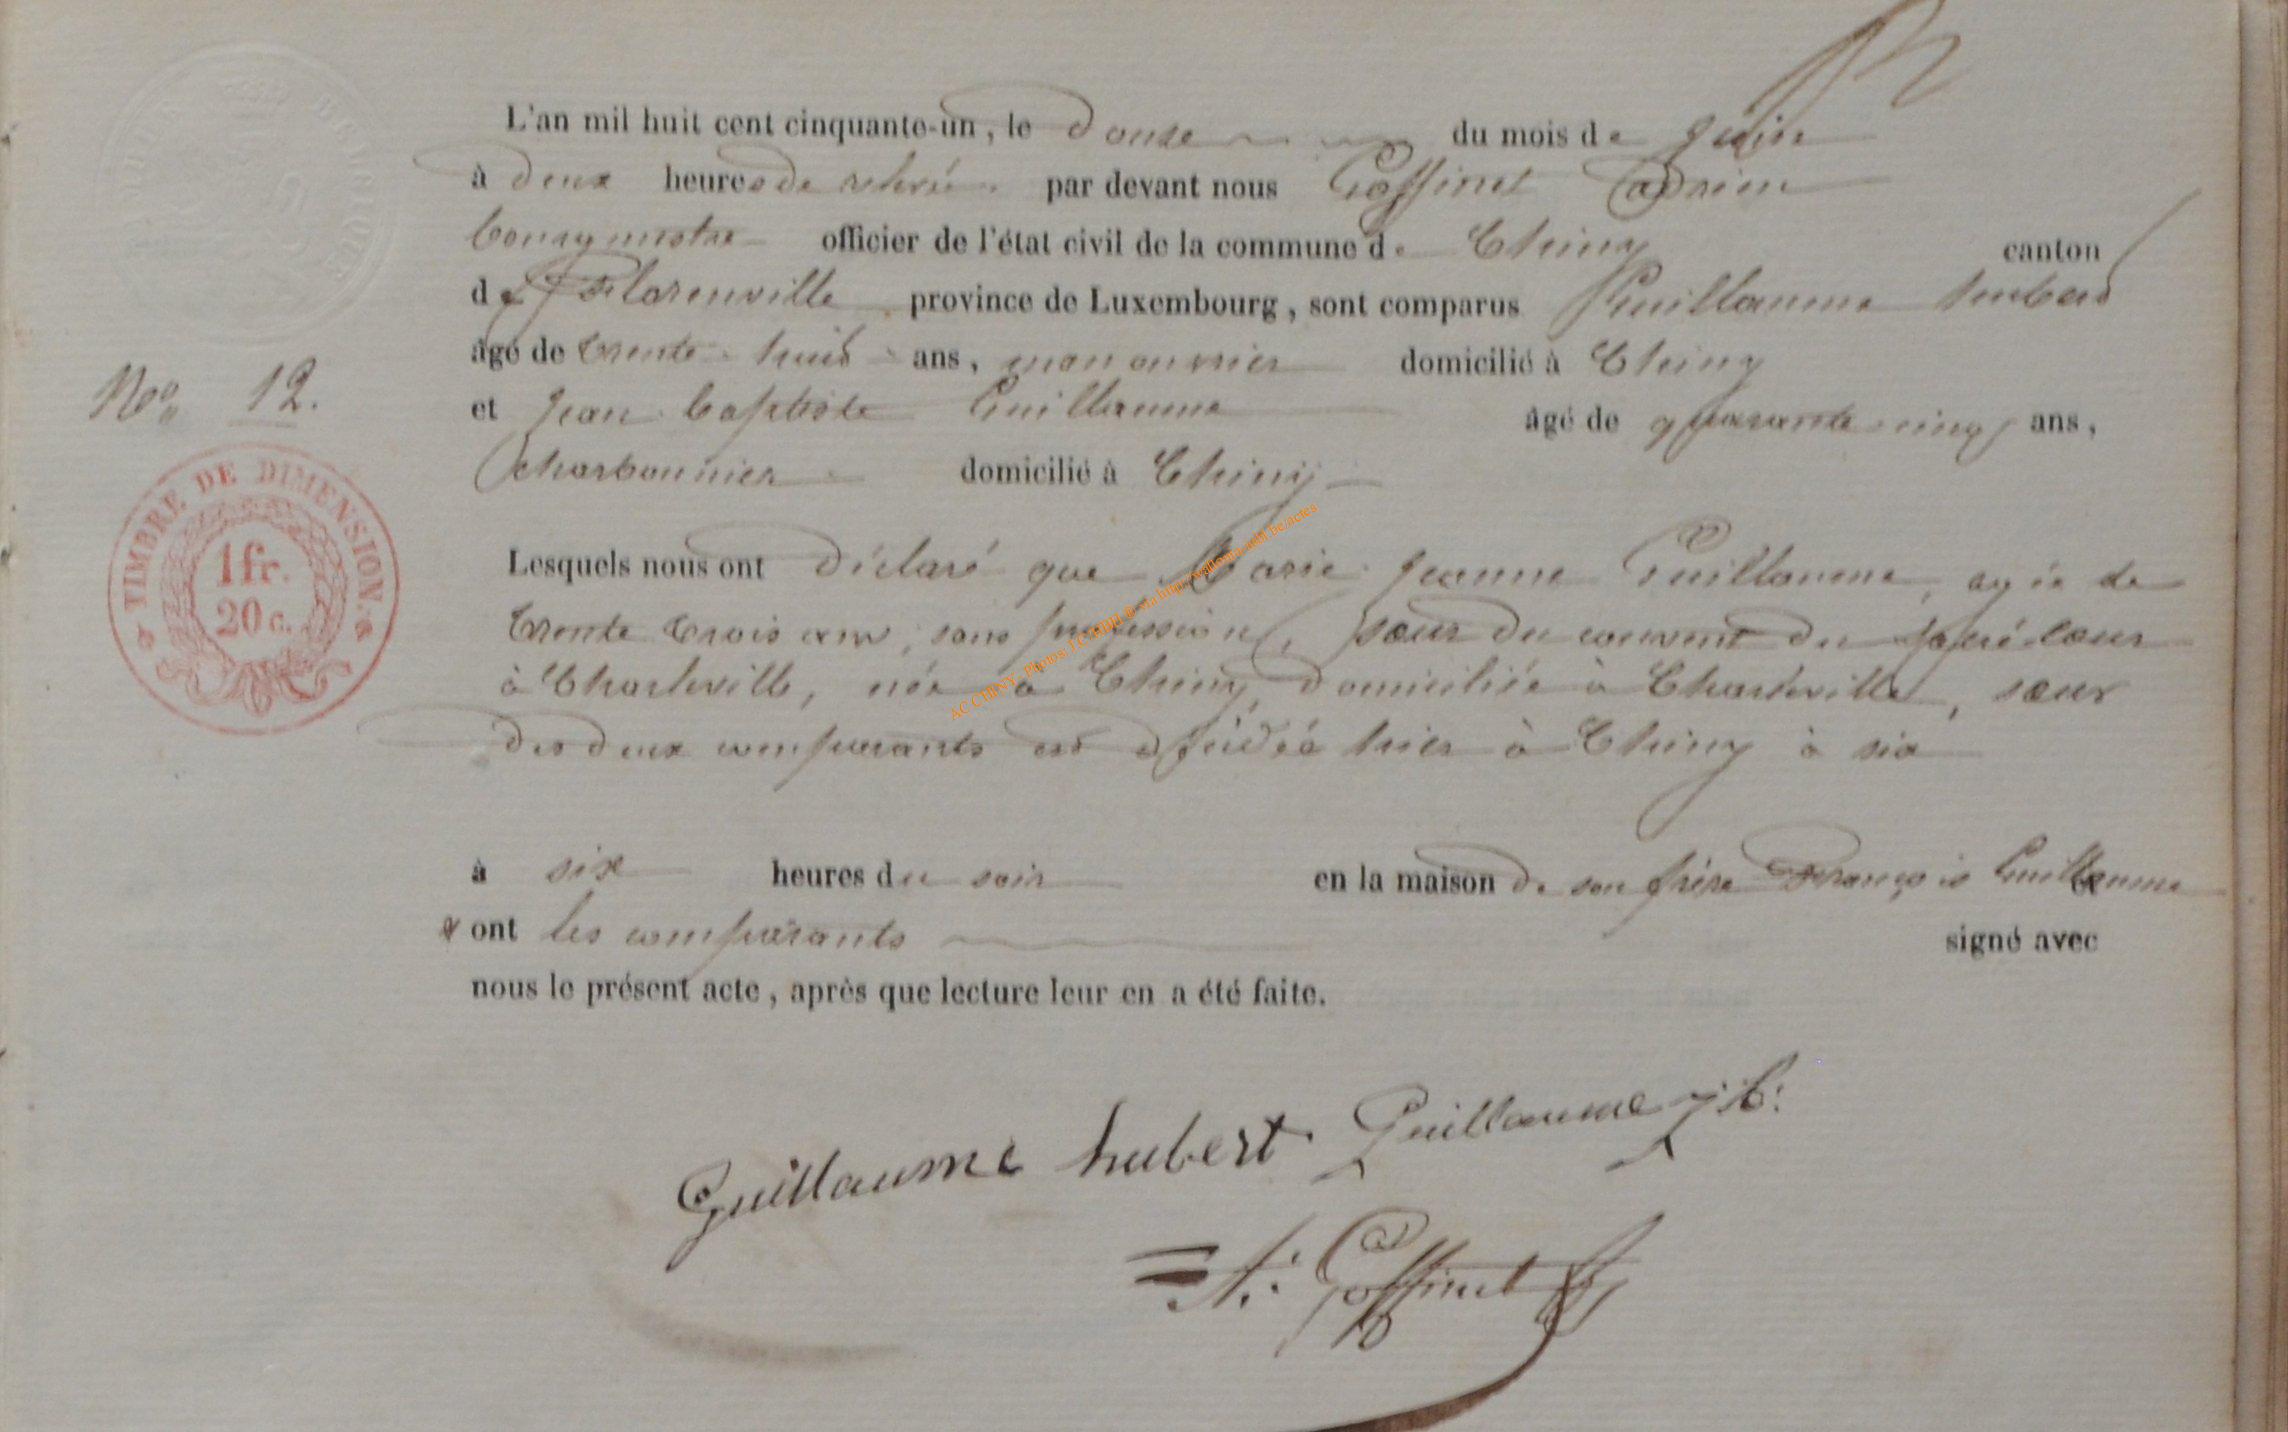 L'an mil huit cent cinquante-un, le douze du mois de juin
à deux heures de relevée par devant nous Goffinet Adrien
bourgmestre officier de l'état civil de la commune de Chiny canton
de Florenville province de Luxembourg, sont comparus Guillaume hubert
âgé de trente-huit ans, manouvrier domicilié à Chiny
No 12.
et Jean baptiste Guillaume âgé de quarante cinq ans,
charbonnier domicilié à Chiny
TIMBRE DE DIMENSION.
1 fr.
20 c.
Lesquels nous ont déclaré que Marie Jeanne Guillaume, agée de
trente trois ans, sans profession, sœur du couvent du sacré-cœur
à Charleville, née à Chiny, domiciliée à Charleville, sœur
des deux comparants est décédée hier à Chiny à six
à six heures du soir en la maison de son frère François Guillaume
& ont les comparants signé avec
nous le présent acte, après que lecture leur en a été faite.
Guillaume hubert Guillaume j b:
A: Goffinet